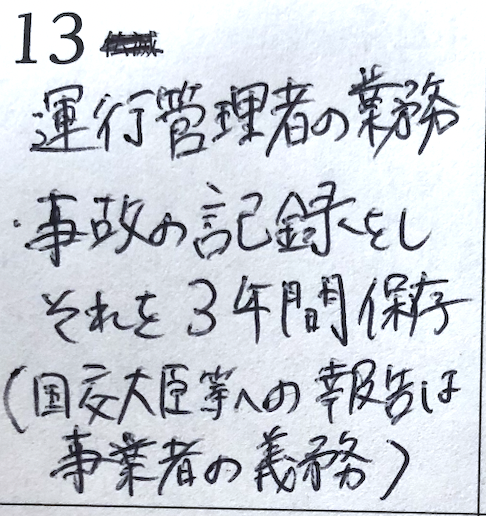 13 仏滅
運行管理者の業務
・事故の記録をし
それを3年間保存
(国交大臣等への報告は
事業者の義務)